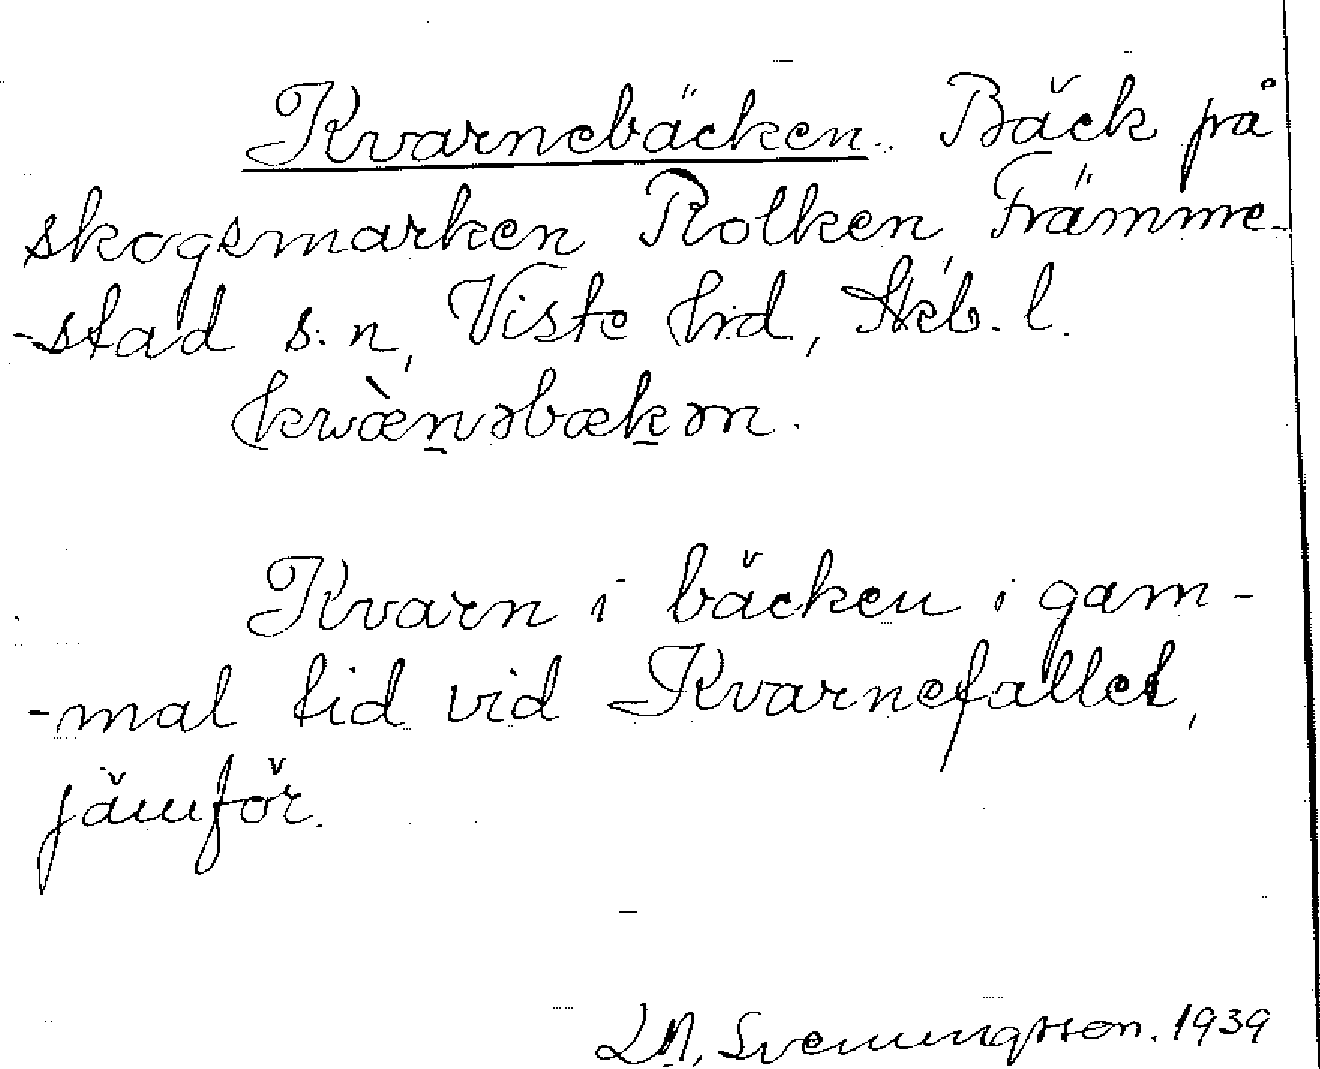 Kvarnebäcken. Bäck på
skogsmarken Rolken, Främme-
-stad s:n, Viste hrd, Skb. l.
kwæ̀n̠əbæk̠ən.
Kvarn i bäcken i gam-
-mal tid vid Kvarnefallet,
jämför.
Svenungsson. 1939